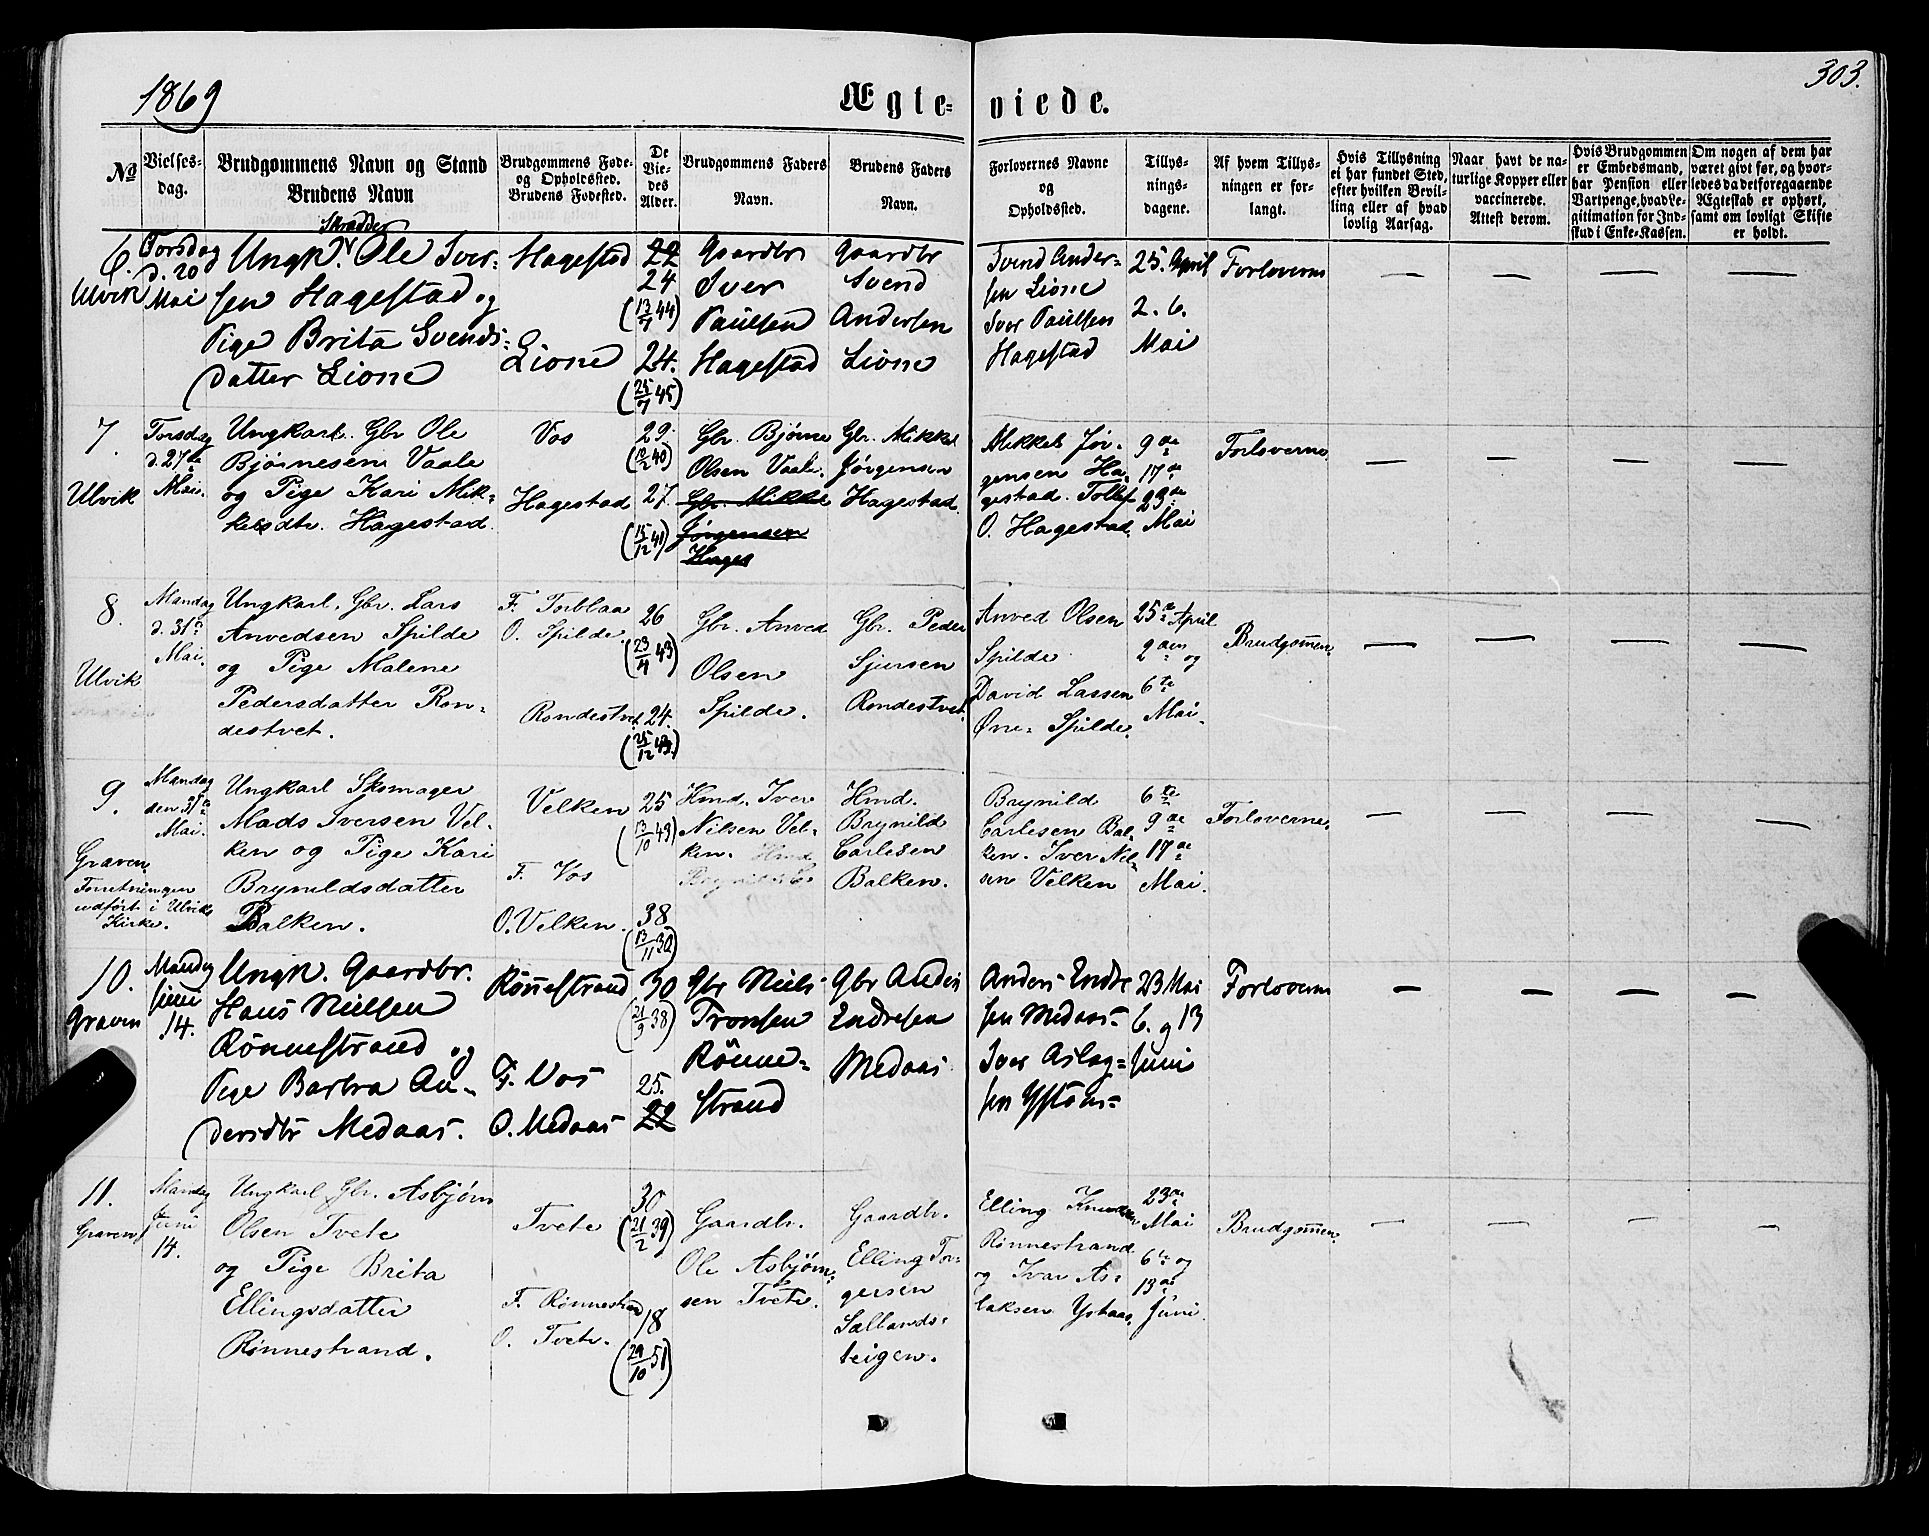 1869
Ægte-viede.
303.
No
Vielses-
dag.
Brudgommens Navn og Stand
Brudens Navn
Brudgommens Føde-
og Opholdssted.
Brudens Fødested.
De
Vie-
des
Alder.
Brudgommens Faders
Navn.
Brudens Faders
Navn.
Forlovernes Navne
og
Opholdssted.
Tillys-
nings-
dagene.
Af hvem Tillys-
ningen er for-
langt.
Hvis Tillysning
ei har fundet Sted,
efter hvilken Bevil-
ling eller af hvad
lovlig Aarsag.
Naar havt de na-
turlige Kopper eller
vaccinerede.
Attest derom.
Hvis Brudgommen
er Embedsmand,
har Pension eller
Vartpenge, hvad Le-
gitimation for Ind-
skud i Enke-Kassen.
Om nogen af dem har
været givt før, og hvor-
ledes da det foregaaende
Ægteskab er ophørt,
samt om lovligt Skifte
er holdt.
6.
Ulvik
Torsdag
d. 20
Mai
Skrædder
Ungk. Ole Iver-
sen Hagestad og
Pige Brita Svends-
datter Lione
Hagestad
Lione
22
24
(13/7 44)
24.
(25/7 45)
Gaardbr
Iver
Paulsen
Hagestad
Gaardbr
Svend
Andersen
Lione
Svend Ander-
sen Lione
Iver Paulsen
Hagestad
25. April
2. 6.
Mai
Forloverne
7.
Ulvik
Torsdag
d. 27de
Mai.
Ungkarl. Gbr Ole
Bjørnesen Vaale
og Pige Kari Mik-
kelsdtr. Hagestad.
Vos
Hagestad
29.
(10/2 40)
27.
(15/12 41)
Gbr. Bjørne
Olsen Vaale.
Gbr. Mikkel
Jørgensen
Hages
Gbr. Mikkel
Jørgensen
Hagestad.
Mikkel Jør-
gensen Ha-
gestad. Tollef
O. Hagestad.
9de
17de
23de
Mai
Forloverne.
8.
Ulvik
Mandag
d. 31te
Mai.
Ungkarl. Gbr. Lars
Anvedsen Spilde
og Pige Malene
Pedersdatter Ron-
destvet.
F. Torblaa
O. Spilde.
Rondestvet
26
(23/4 43)
24.
(25/12 43.)
Gbr. Anved
Olsen
Spilde.
Gbr. Peder
Sjursen
Rondestvet.
Anved Olsen
Spilde
David Lassen
Øvre-Spilde.
25de April
2den og
6te
Mai.
Brudgommen.
9.
Graven
Forretningen
udført i Ulviks
Kirke.
Mandag
den 31te
Mai.
Ungkarl Skomager
Mads Iversen Vel-
ken og Pige Kari
Brynildsdatter
Balken.
Velken
F. Vos
O. Velken.
25
(13/10 43)
38
(13/11 30)
Hmd. Iver
Nilsen Vel-
ken.
Hmd.
Brynild
Carlesen
Balken.
Brynild
Carlesen Bal-
ken. Iver Nil-
sen Velken
6te
9de
17de
Mai.
Forloverne.
10.
Graven
Mandag
Juni
14.
Ungk. Gaardbr.
Hans Nielsen
Rønnestrand og
Pige Barbra An-
dersdtr Medaas.
Rønnestrand
F. Vos
O. Medaas
30
(21/9 38)
25.
22
Gbr Niels
Tronsen
Rønne-
strand
Gbr Anders
Endresen
Medaas
Anders Endre-
sen Medaas-
Iver Aslag-
sen Ystaas-
23 Mai
6. og 13
Juni
Forloverne
11.
Graven
Mandag
Juni
14.
Ungkarl Gbr. Asbjørn
Olsen Tvete
og Pige Brita
Ellingsdatter
Rønnestrand.
Tvete
F. Rønnestran
O. Tvete.
30
(21/2 39)
18
(29/10 51)
Gaardbr.
Ole Asbjørn-
sen Tvete.
Gaardbr.
Elling Tor-
gersen
Sallands-
teigen.
Elling Knudsen
Rønnestrand
og Ivar As-
laksen Ystaas.
23de
Mai
6te og
13de
Juni.
Brudgommen.